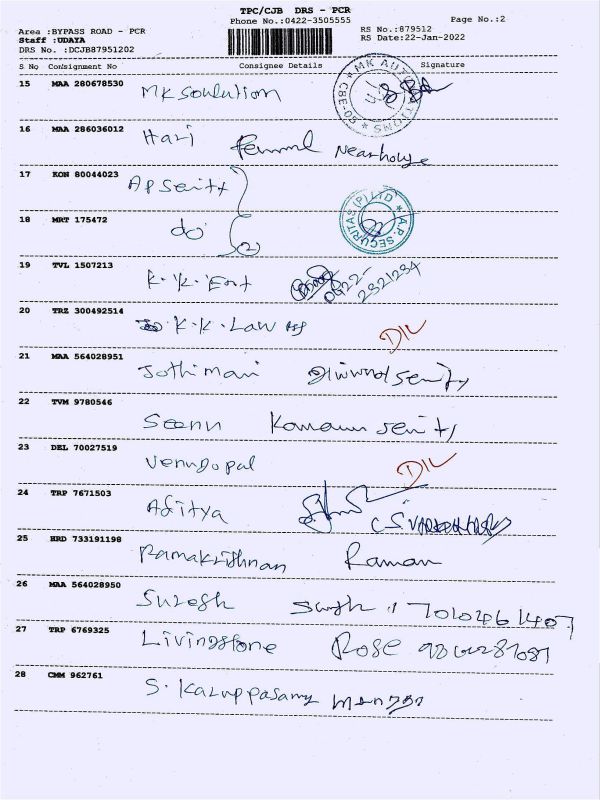 TPC/CJB DRS - PCR
Phone No.:0422-3505555
Page No.:2
Area :BYPASS ROAD - PCR
RS No.:879512
Staff :UDAYA
RS Date:22-Jan-2022
DRS No. :DCJB87951202
S No Consignment No Consignee Details Signature
MK AUTOMATIONS * CBE-05 *
15 MAA 280678530
MK Soulution
16 MAA 286036012
Hari Near house
17 KON 80044023
AP Seity
18 MRT 175472
do
A.P. SECURITAS (P) LTD
19 TVL 1507213
K.K. Ent 0422-2321234
20 TRZ 300492514
K.K. Law
DIL
21 MAA 564028951
Jothimani
22 TVM 9780546
Seenu
23 DEL 70027519
Venugopal
DIL
24 TRP 7671503
Aditya
25 HRD 733191198
Ramakrishnan Raman
26 MAA 564028950
Suresh
27 TRP 6769325
Livingstone Rose
28 CMM 962761
S. Karuppasamy